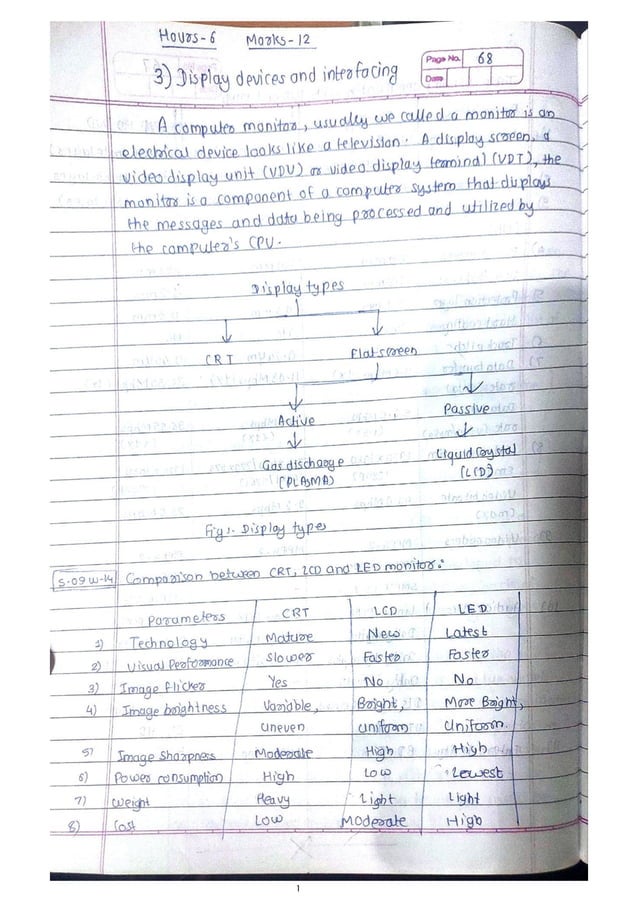 Hours-6 Marks-12
Page No. 68
Date
3) Display devices and interfacing
A computer monitor, usually we called a monitor is an
electrical device looks like a television. A display screen, a
video display unit (VDU) or video display terminal (VDT), the
monitor is a component of a computer system that displays
the messages and data being processed and utilized by
the computer's CPU.
Display types
CRT Flat screen
Active Passive
Gas discharge Liquid Crystal
(PLASMA) (LCD)
Fig:- Display types
S-09 W-14 Comparison between CRT, LCD and LED monitor:
Parameters CRT LCD LED
1) Technology Mature New Latest
2) Visual Performance Slower Faster Faster
3) Image flicker Yes No No
4) Image brightness Variable, Bright, More Bright,
uneven uniform Uniform.
5) Image Sharpness Moderate High High
6) Power consumption High Low Lowest
7) Weight Heavy Light Light
8) Cost Low Moderate High
1